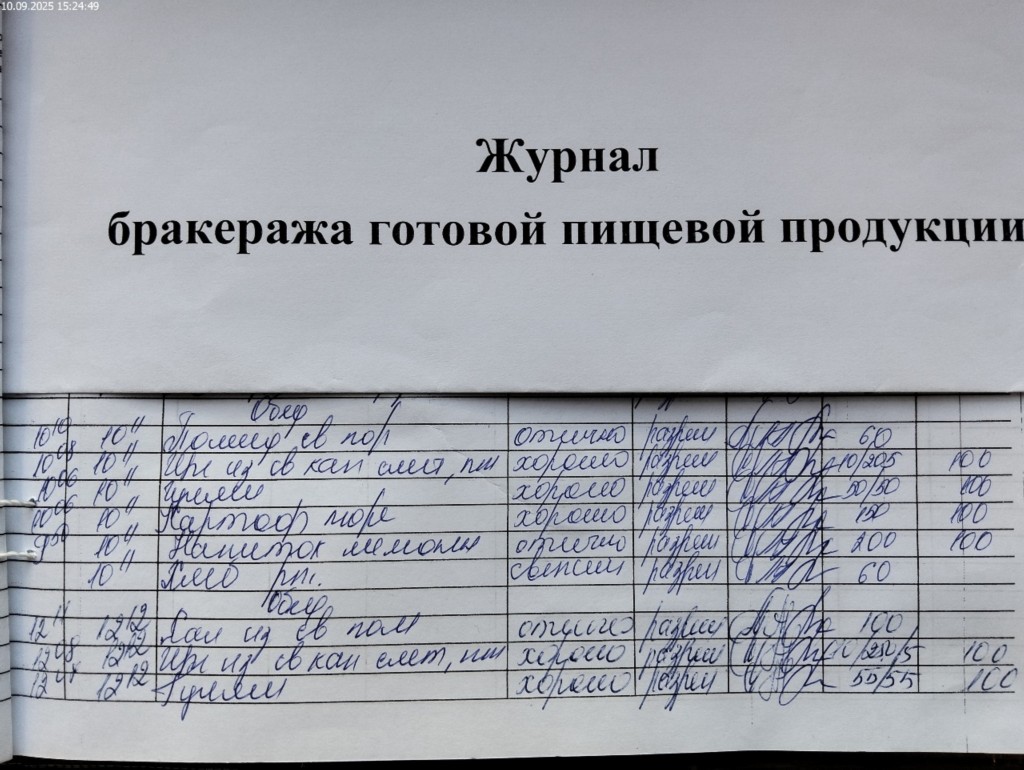 10.09.2025 15:24:49
Журнал
бракеража готовой пищевой продукции
Обед
10 10 10 11 Помид св пор отлично разреш 60
10 08 10 11 Щи из св кап смет, хорошо разреш 10/205 100
10 06 10 11 Гуляш хорошо разреш 50/50 100
10 06 10 11 Картоф пюре хорошо разреш 150 100
9 50 10 11 Напиток лимон отлично разреш 200 100
10 11 Хлеб рж. разреш 60
Обед
12 11 12 12 Сал из св пом отлично разреш 100
12 08 12 12 Щи из св кап смет, хорошо разреш 100
12 12 12 Гуляш хорошо разреш 55/55 100